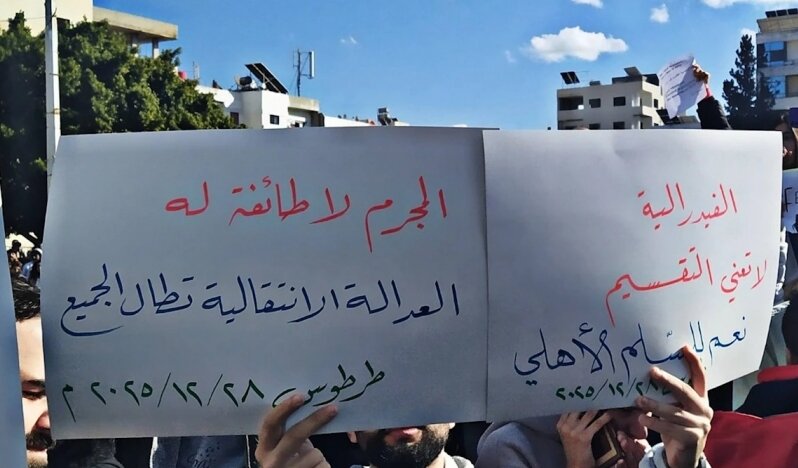 المجرم لا طائفة له
العدالة الانتقالية تطال الجميع
طرطوس ٢٠٢٥/١٢/٢٨ م
الفيدرالية
لا تعني التقسيم
نعم للسّلم الأهلي
٢٠٢٥/١٢/٢٨